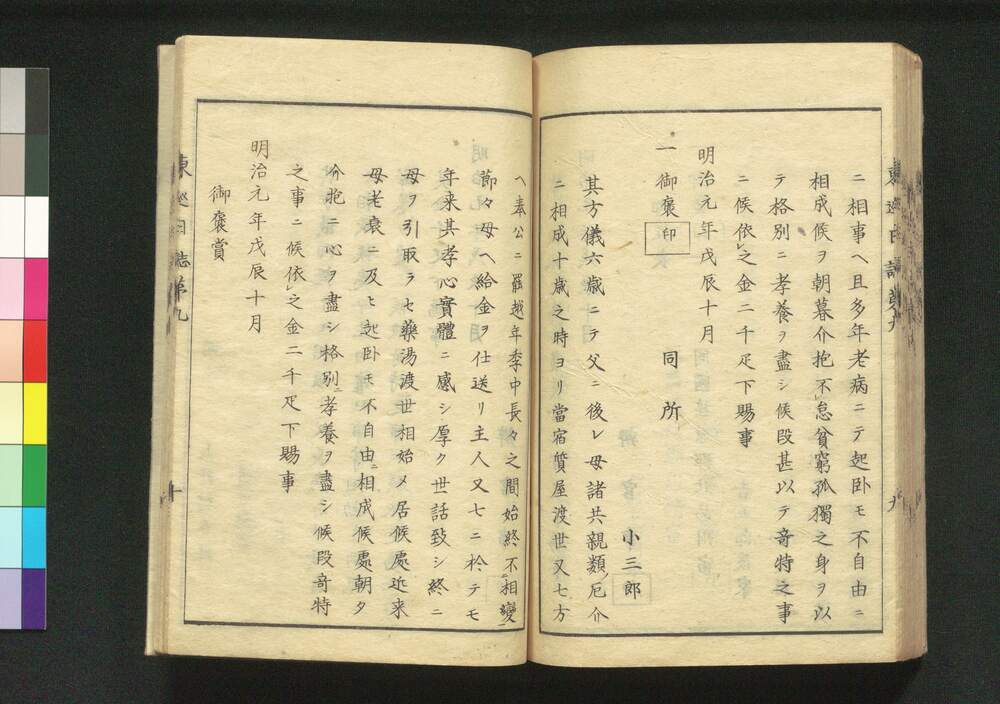 ニ相事ヘ且多年老病ニテ起卧モ不自由ニ
相成候ヲ朝暮介抱不怠貧窮孤獨之身ヲ以
テ格別ニ孝養ヲ盡シ候段甚以テ竒特之事
ニ候依之金二千疋下賜事
明治元年戊辰十月
一御褒印
同所
小三郎
其方儀六歳ニテ父ニ後レ母諸共親類ノ厄介
ニ相成十歳之時ヨリ當宿質屋渡世又七方
ヘ奉公ニ罷越年季中長々之間始終不相變
節々母ヘ給金ヲ仕送リ主人又七ニ於テモ
年来其孝心實體ニ感シ厚ク世話致シ終ニ
母ヲ引取ラセ藥湯渡世相始メ居候處近来
母老衰ニ及ヒ起卧モ不自由ニ相成候處朝夕
介抱ニ心ヲ盡シ格別ニ孝養ヲ盡シ候段竒特
之事ニ候依之金二千疋下賜事
明治元年戊辰十月
御褒賞
東巡日誌第九
十
九